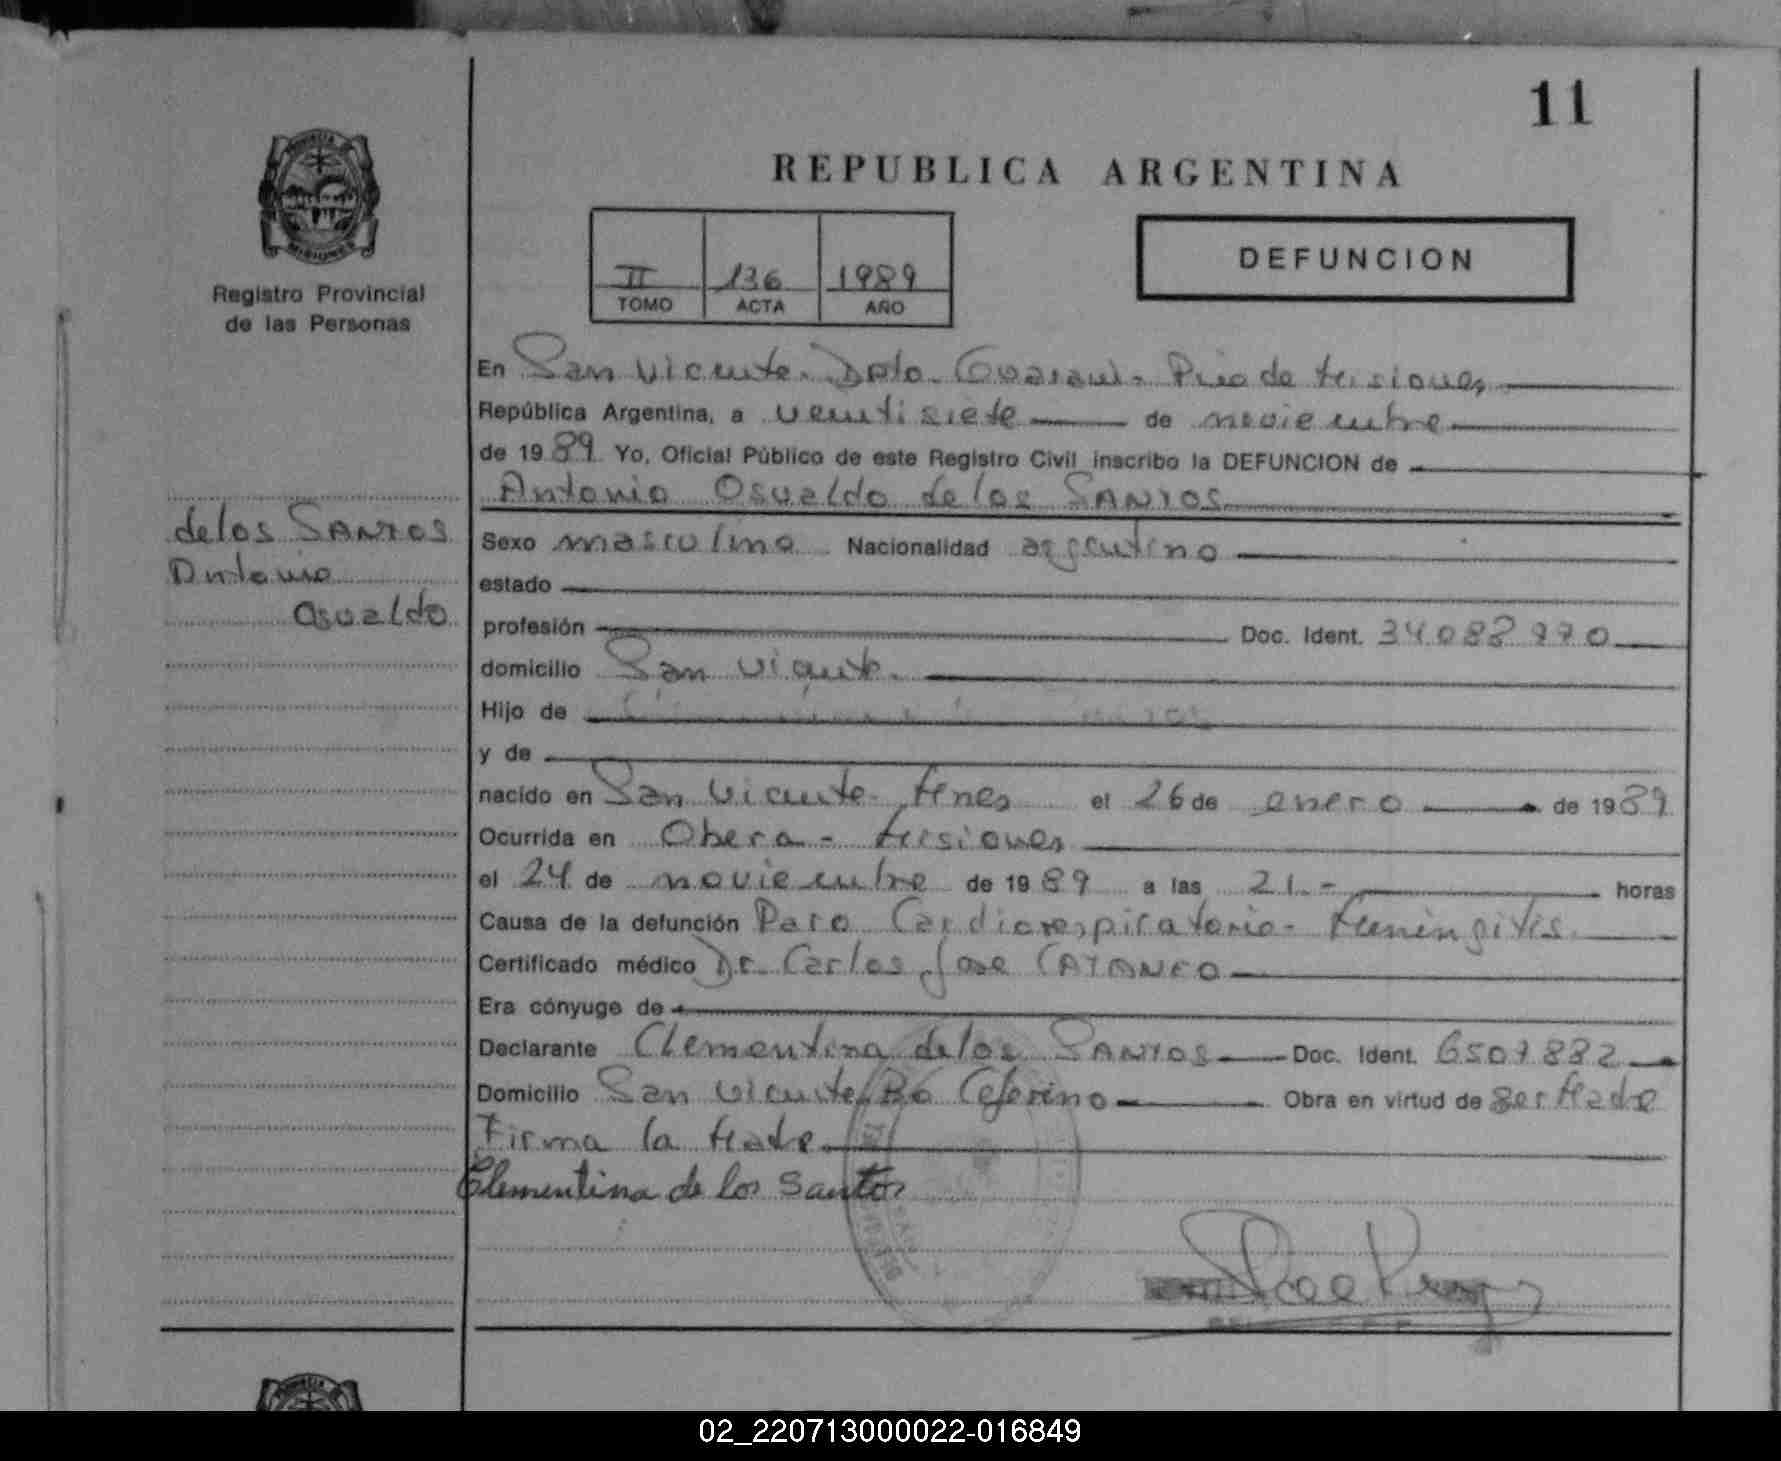 11
REPUBLICA ARGENTINA
PROVINCIA
MISIONES
Registro Provincial
de las Personas
II 136 1989
TOMO ACTA AÑO
DEFUNCION
En San Vicente. Dpto. Guarani. Pcia de Misiones
República Argentina, a veintisiete de noviembre
de 1989 Yo, Oficial Público de este Registro Civil inscribo la DEFUNCION de
Antonio Osvaldo de los SANTOS
de los SANTOS
Antonio
Osvaldo
Sexo masculino Nacionalidad argentino
estado
profesión Doc. Ident. 34.088.990
domicilio San Vicente.
Hijo de
y de
nacido en San Vicente- Mnes el 26 de enero de 1989
Ocurrida en Obera - Misiones
el 24 de noviembre de 1989 a las 21.- horas
Causa de la defunción Paro Cardiorespiratorio- Meningitis
Certificado médico Dr. Carlos Jose CATANEO
Era cónyuge de
Declarante Clementina de los SANTOS Doc. Ident. 6507882
Domicilio San Vicente, Bº Ceferino Obra en virtud de ser Madre
Firma la Madre
Clementina de los Santos
02_220713000022-016849